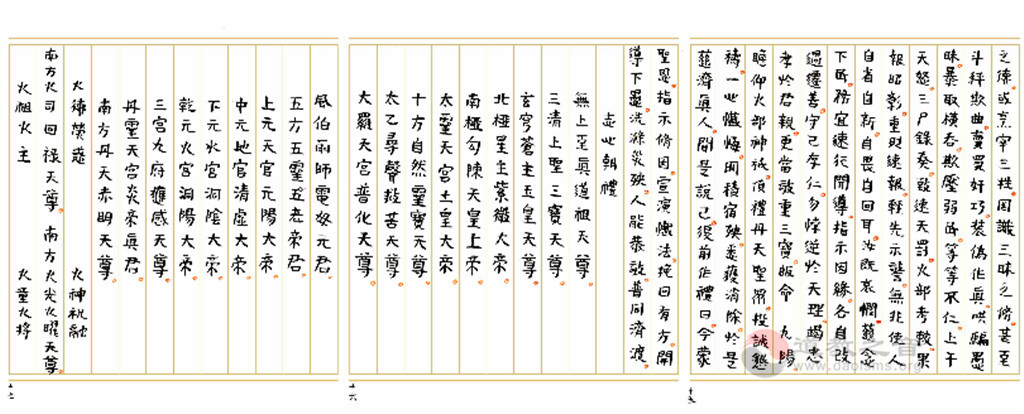 之俸或烹宰三牲罔識三昧之脩甚至
斗秤欺曲賣買奸巧裝偽作真哄騙愚
昧暴取橫吞欺壓弱等等不仁上干
天怒三尸錄奏致速天罰火部考較果
報昭彰重則速報輕先示警無非使人
自省自新自畏自回耳汝既哀憫慈念
下民務宜速行開導指示因緣各自改
過遷善守己存仁勿悖逆於天理竭志
孝於君親更當敬重三寶皈命 九陽
瞻仰火部神祇頂禮丹天聖眾投誠懇
禱一心懺悔則積宿殃悉獲消除於是
慈濟真人聞是說已復前作禮曰今蒙
聖恩指示脩因宣演懺法挽回有方開
導下愚洗滌災殃人能恭敬普同濟渡
志心朝禮
無上至真道祖天尊
三清上聖三寶天尊
玄穹蒼主玉皇大帝
北極星主紫微大帝
南極勾陳天皇上帝
太靈天宮土皇大帝
十方自然靈寶天尊
太乙尋聲救苦天尊
大羅天宮普化天尊
十六
風伯雨師電母元君
五方五靈五老帝君
上元天官元陽大帝
中元地官清虛大帝
下元水官洞陰大帝
乾元火官洞陽大帝
三宮九府應感天尊
丹靈天宮炎帝真君
南方丹天赤明天尊
火德熒惑 火神祝融
南方火司回祿天尊 南方火光火曜天尊
火祖火主 火童火將
十七
十五
道教之音
www.daoisms.org